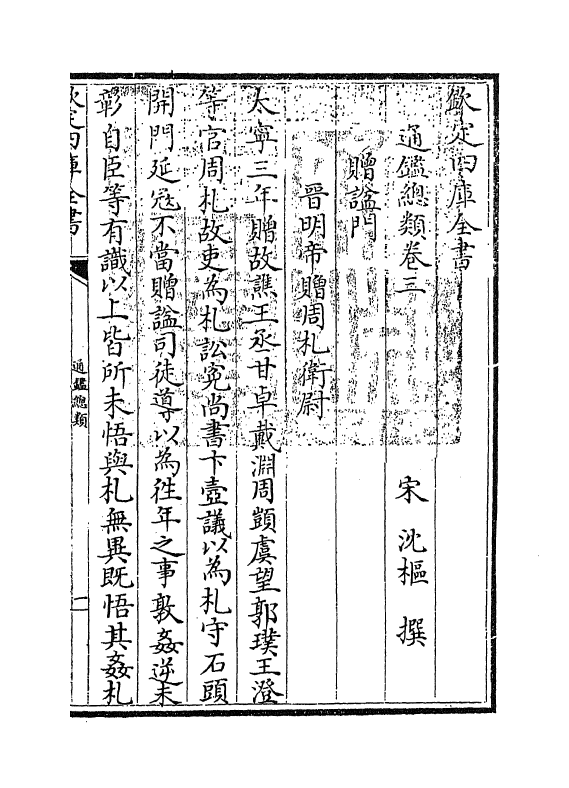 欽定四庫全書
通鑑總類卷三 宋 沈樞 撰
贈諡門
晉明帝贈周札衛尉
太寧三年贈故譙王丞甘卓戴淵周顗虞望郭璞王澄
等官周札故吏為札訟寃尚書卞壼議以為札守石頭
開門延宼不當贈諡司徒導以為徃年之事敦姦逆未
彰自臣等有識以上皆所未悟與札無異既悟其姦札
欽定四庫全書
通鑑總類